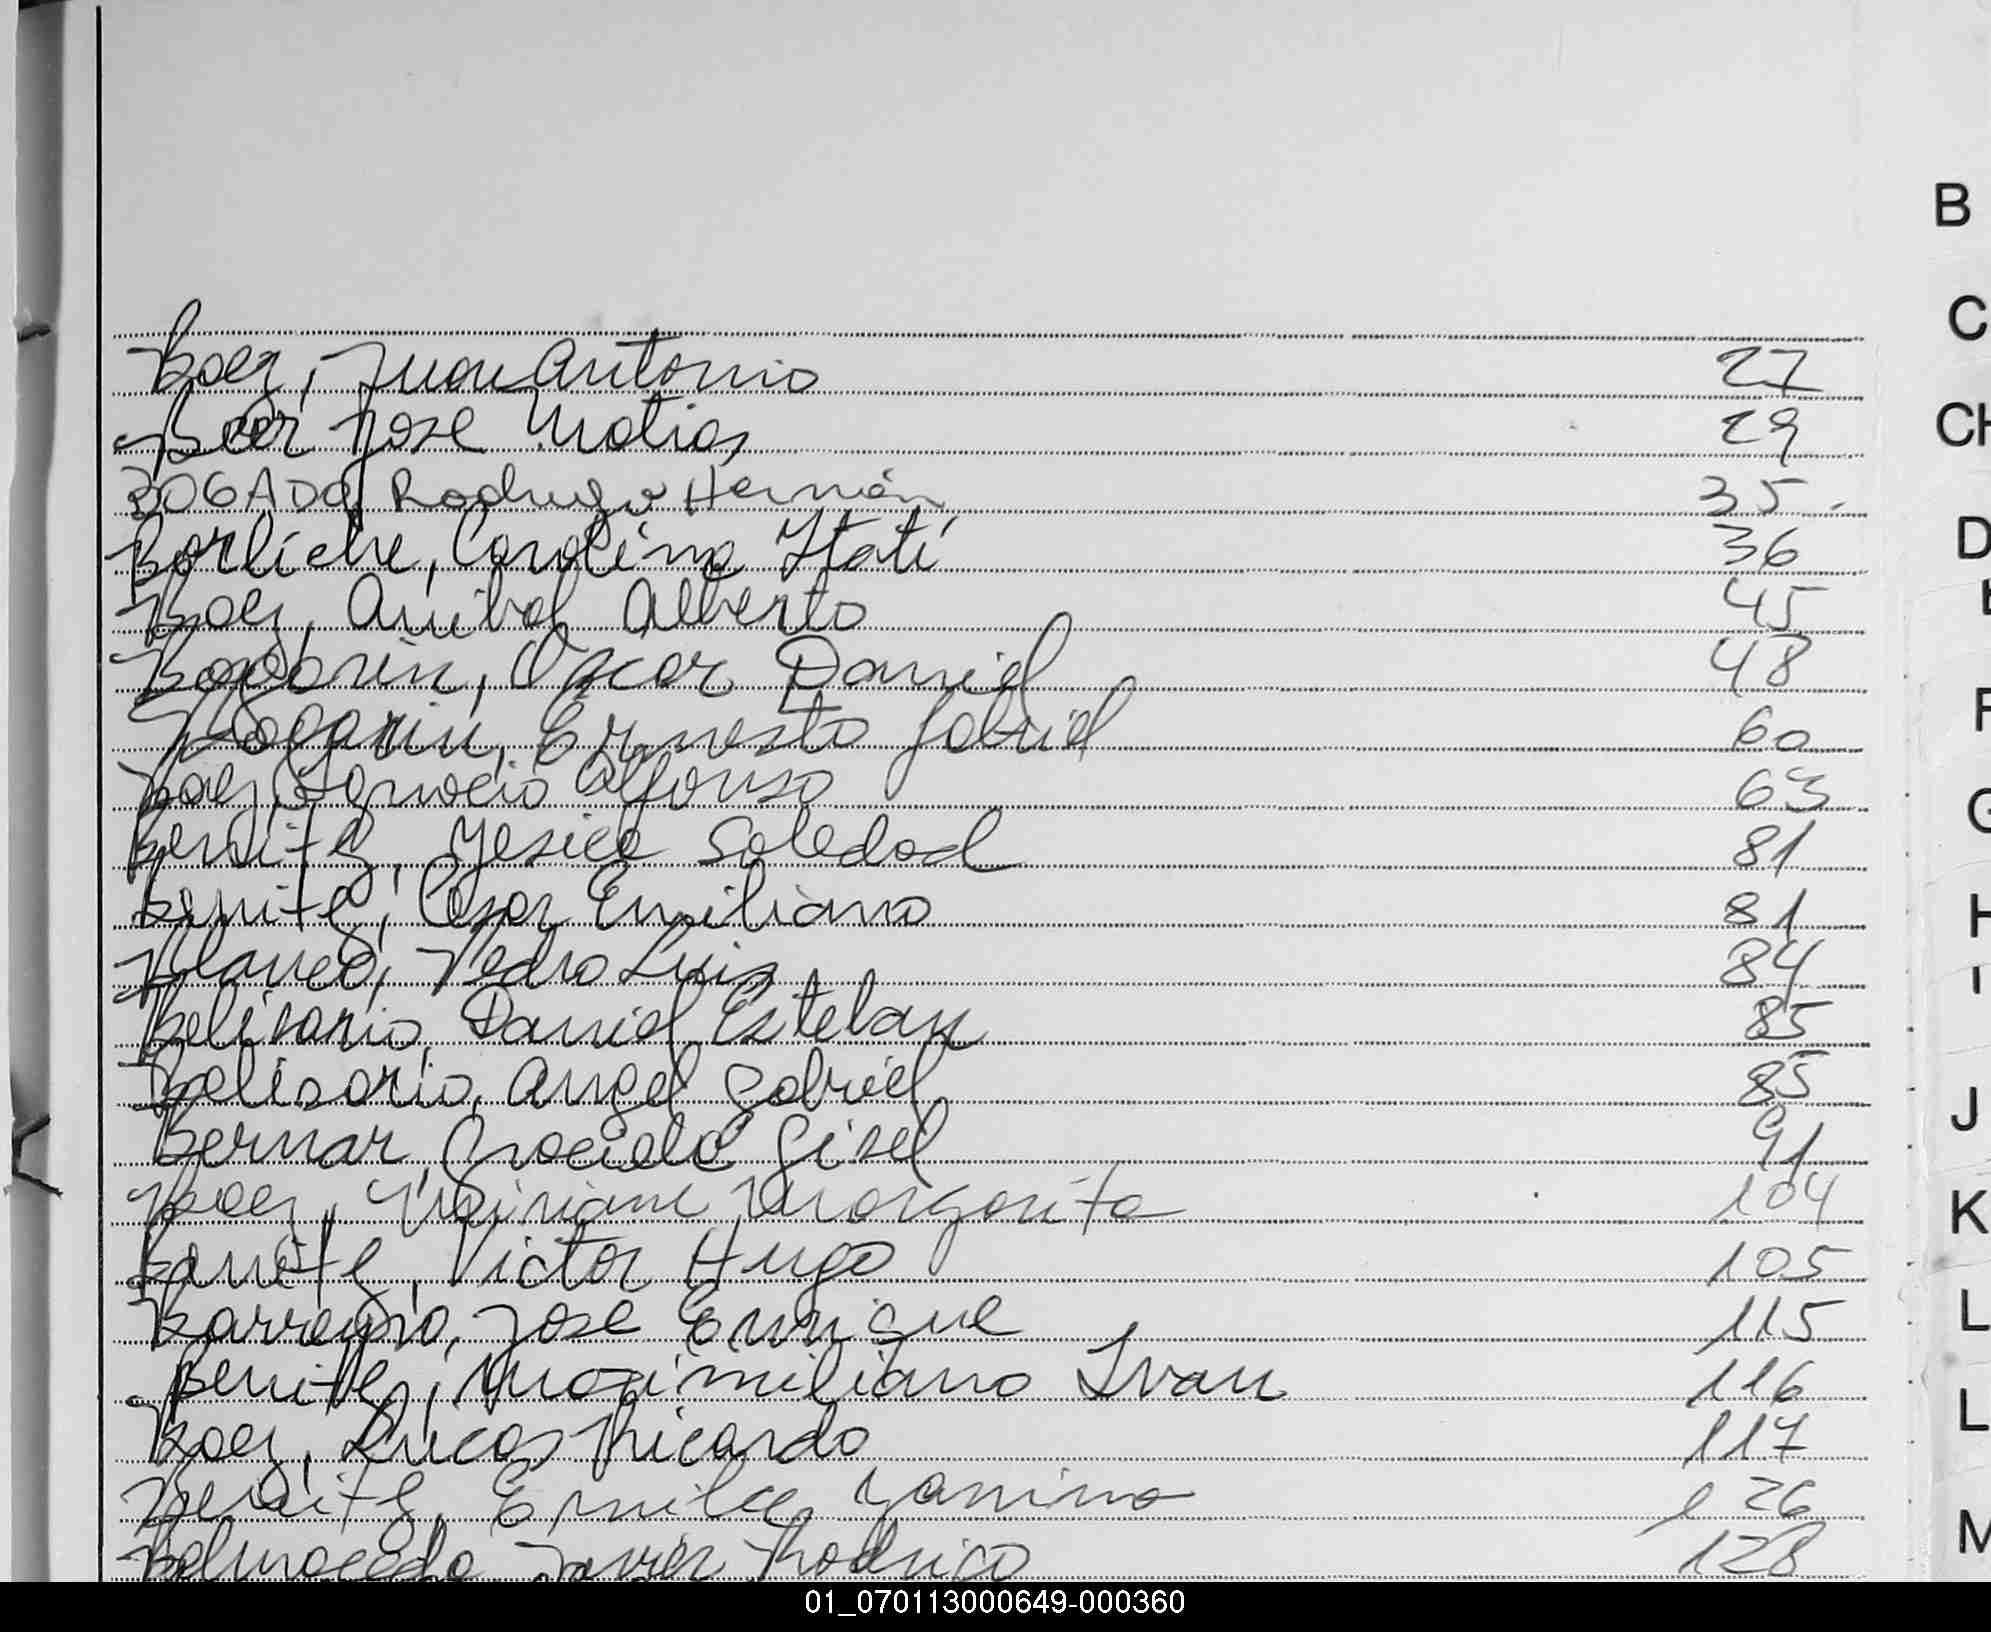 B
C
CH
D
Baez, Juan Antonio 27
Baez Jose Matias 29
BOGADO, Rodrigo Hernán 35
Borliche, Carolina Itatí 36
Baez, Anibal Alberto 45
Oscar Daniel 48
Bogarin, Ernesto Gabriel 60
Baez, Ignacio Alfonso 63
Benitez, Yesica Soledad 81
Benitez, Cesar Emiliano 81
Blanco, Pedro Luis 84
Belisario, Daniel Esteban 85
Belisario, Angel Gabriel 85
Bernar, Graciela Gisel 91
Baez, Miriam Margarita 104
Victor Hugo 105
Barreyro, Jose Enrique 115
Benitez, Maximiliano Ivan 116
Baez, Lucas Ricardo 117
Benitez, Emilce Yanina 126
Balmaceda Javier Rodrigo 128
F
G
H
I
J
K
L
L
M
01_070113000649-000360